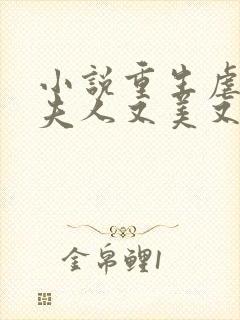 小说重生虐
夫人又美又
金帛鲤1